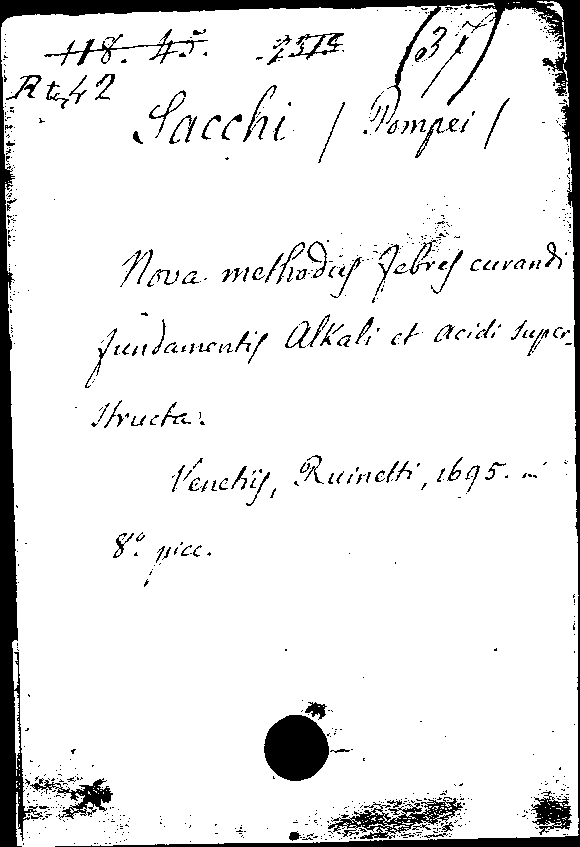 118. 45. (37)
R 42
Sacchi / Pompei /
Nova methodus febres curandi
fundamentis Alkali et acidi super-
structa.
Venetijs, Ruinetti, 1695. in
8º. picc.